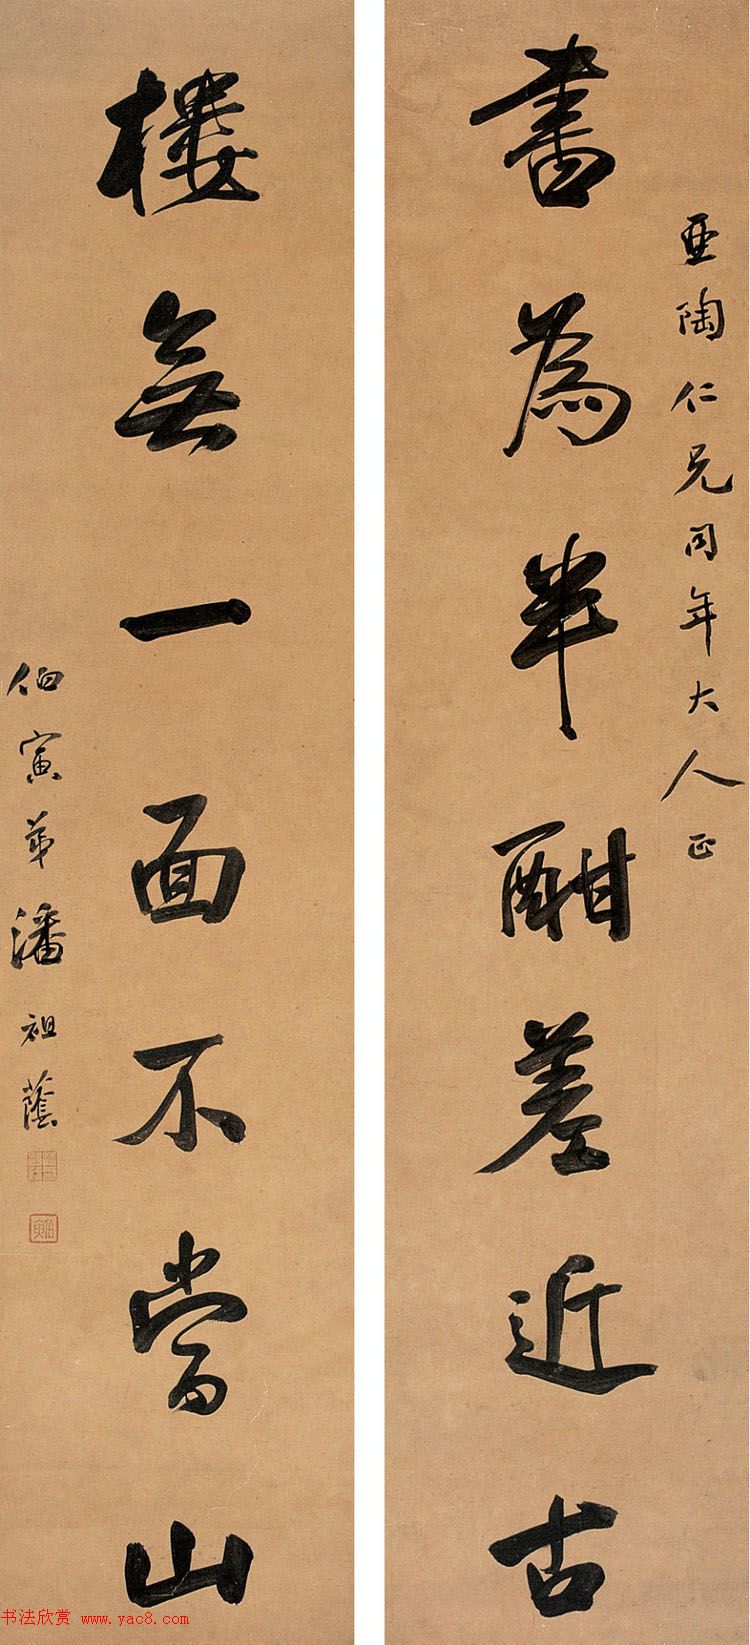 亜陶仁兄同年大人正
書為半酣差近古
樓無一面不當山
伯寅弟潘祖蔭
书法欣赏 www.yac8.com